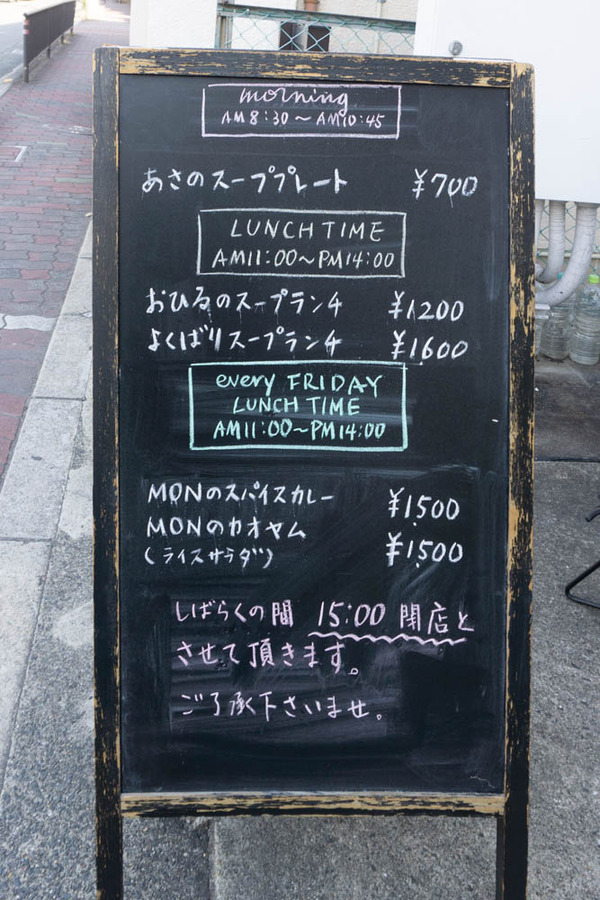 morning
AM8:30～AM10:45
あさのスーププレート ¥700
LUNCH TIME
AM11:00～PM14:00
おひるのスープランチ ¥1200
よくばりスープランチ ¥1600
every FRIDAY
LUNCH TIME
AM11:00～PM14:00
MONのスパイスカレー ¥1500
MONのカオヤム ¥1500
(ライスサラダ)
しばらくの間 15:00 閉店と
させて頂きます。
ご了承下さいませ。